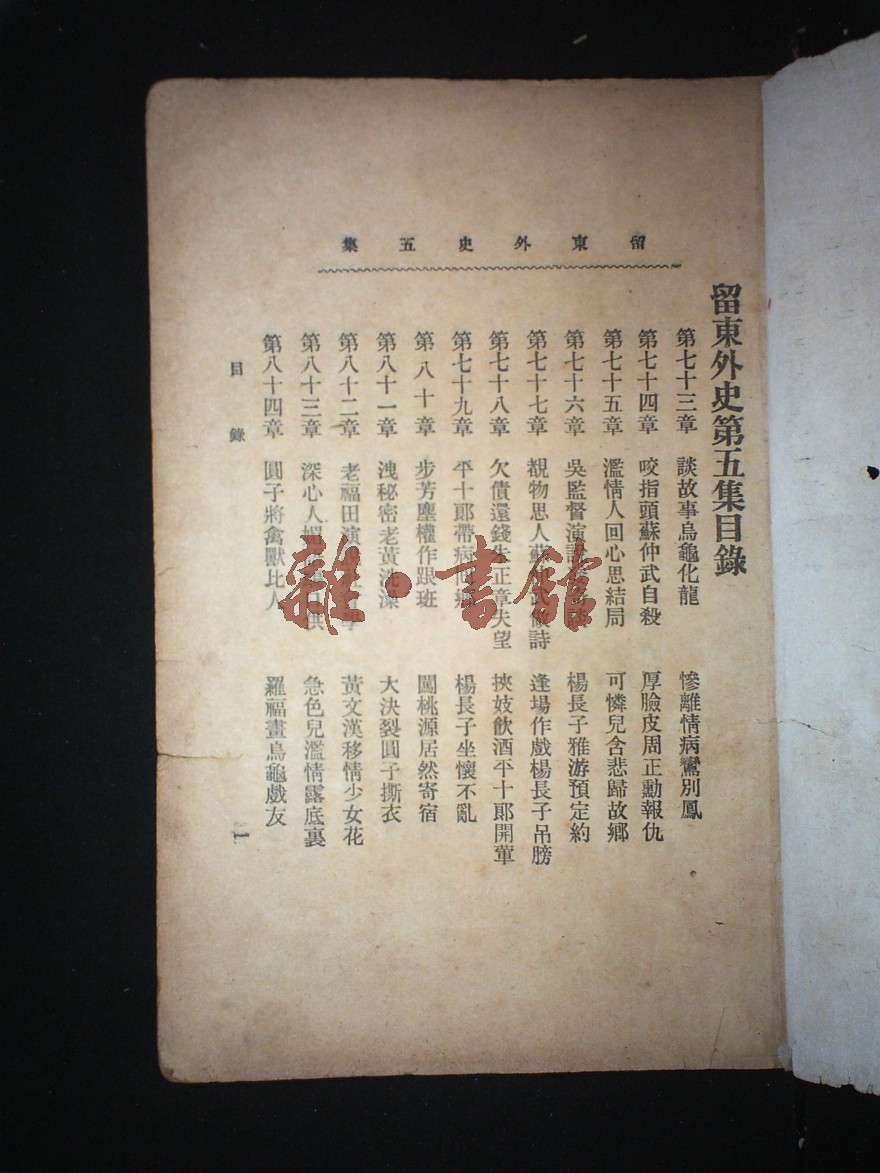 留東外史五集
留東外史第五集目錄
第七十三章 談故事烏龜化龍 慘離情病鸞別鳳
第七十四章 咬指頭蘇仲武自殺 厚臉皮周正勳報仇
第七十五章 濫情人回心思結局 可憐兒含悲歸故鄉
第七十六章 吳監督演 楊長子雅游預定約
第七十七章 覩物思人蘇 詩 逢場作戲楊長子吊膀
第七十八章 欠債還錢朱正章失望 挾妓飲酒平十郞開葷
第七十九章 平十郞帶病 楊長子坐懷不亂
第八十章 步芳塵權作跟班 闖桃源居然寄宿
第八十一章 洩秘密老黃洗澡 大決裂圓子撕衣
第八十二章 老福田演 黃文漢移情少女花
第八十三章 深心人 供 急色兒濫情露底裏
第八十四章 圓子將禽獸比人 羅福畫烏龜戲友
目錄
一
雜·書館